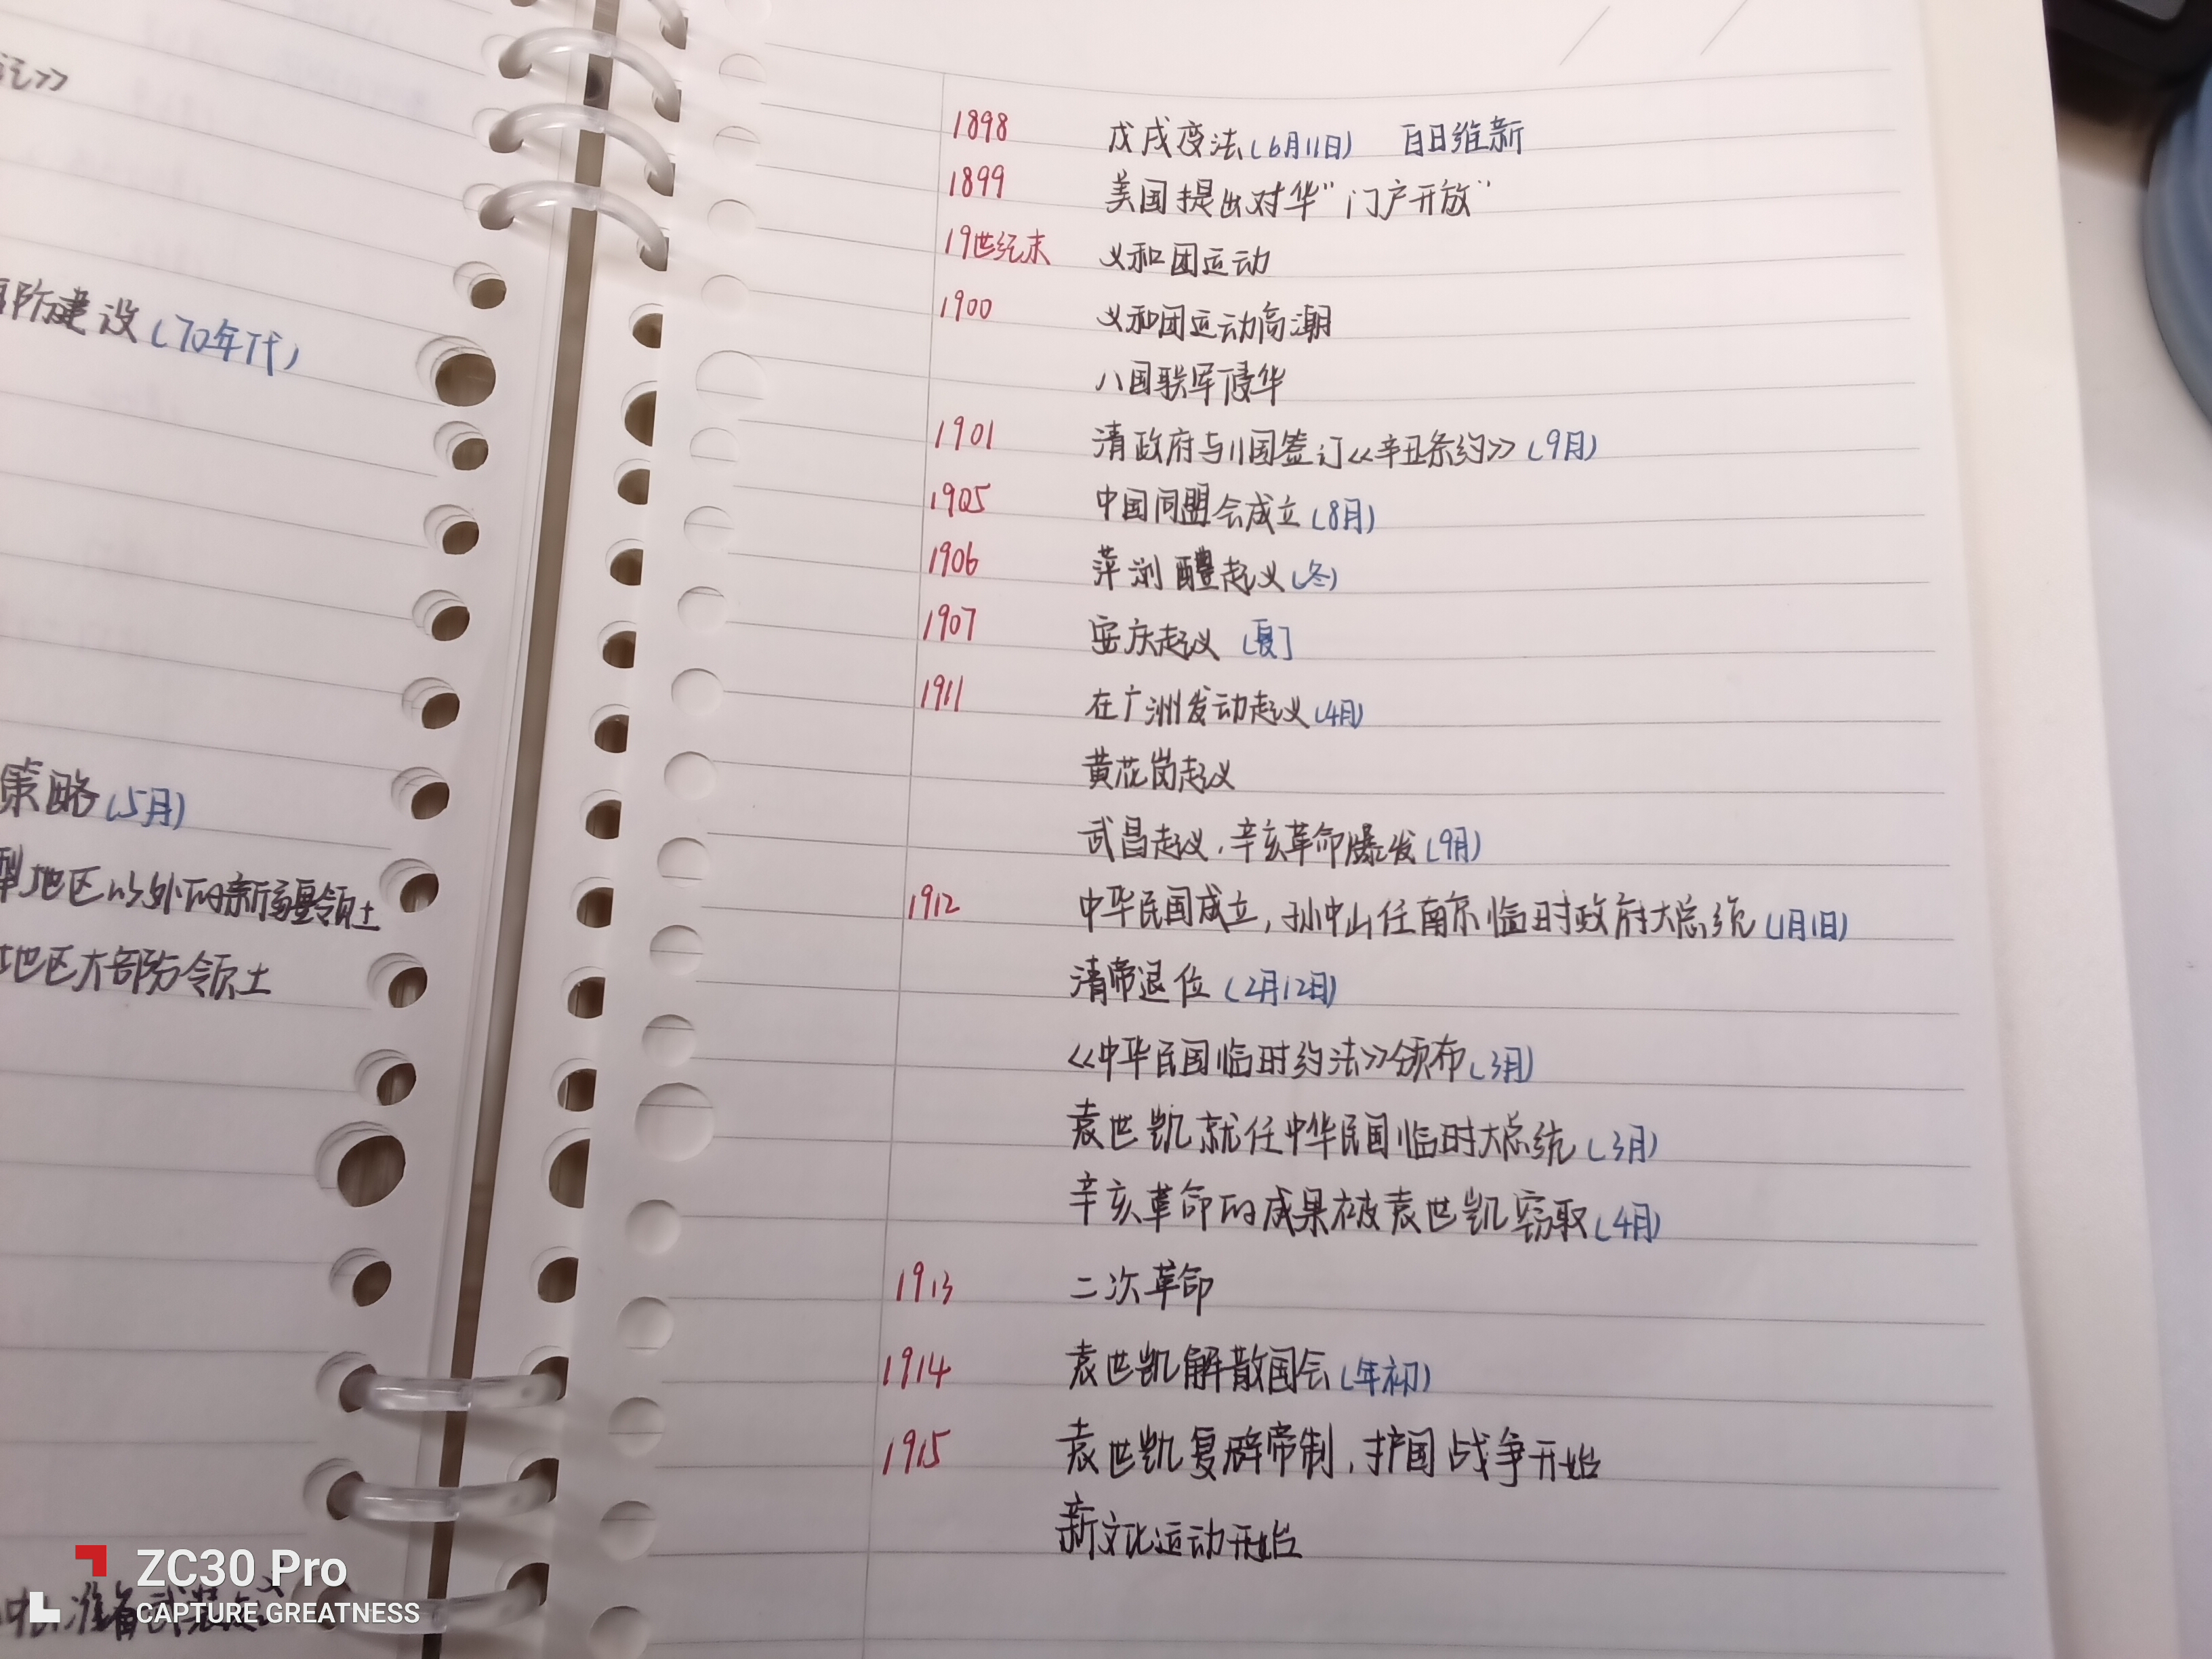 记》
防建设（70年代）
策略（5月）
地区以外的新疆领土
地区大部分领土
准备武装起义
1898 戊戌变法（6月11日） 百日维新
1899 美国提出对华“门户开放”
19世纪末 义和团运动
1900 义和团运动高潮
八国联军侵华
1901 清政府与11国签订《辛丑条约》（9月）
1905 中国同盟会成立（8月）
1906 萍浏醴起义（冬）
1907 安庆起义［夏］
1911 在广洲发动起义（4月）
黄花岗起义
武昌起义，辛亥革命爆发（9月）
1912 中华民国成立，孙中山任南京临时政府大总统（1月1日）
清帝退位（2月12日）
《中华民国临时约法》颁布（3月）
袁世凯就任中华民国临时大总统（3月）
辛亥革命的成果被袁世凯窃取（4月）
1913 二次革命
1914 袁世凯解散国会（年初）
1915 袁世凯复辟帝制，护国战争开始
新文化运动开始
ZC30 Pro
CAPTURE GREATNESS